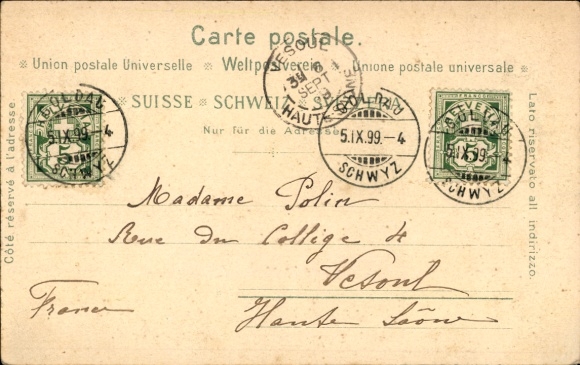 Carte postale.
Union postale Universelle Weltpostverein Unione postale universale
SUISSE SCHWEIZ
Nur für die Adresse
Côté réservé à l'adresse.
Lato riservato all indirizzo.
VESOUL
SEPT
HAUTE SAONE
GOLDAU
5.IX.99.-4
SCHWYZ
GOLDAU
5.IX.99.-4
SCHWYZ
GOLDAU
5.IX.99.-4
SCHWYZ
5
Madame Polin
Rue du Collège 4
Vesoul
France Haute Saône